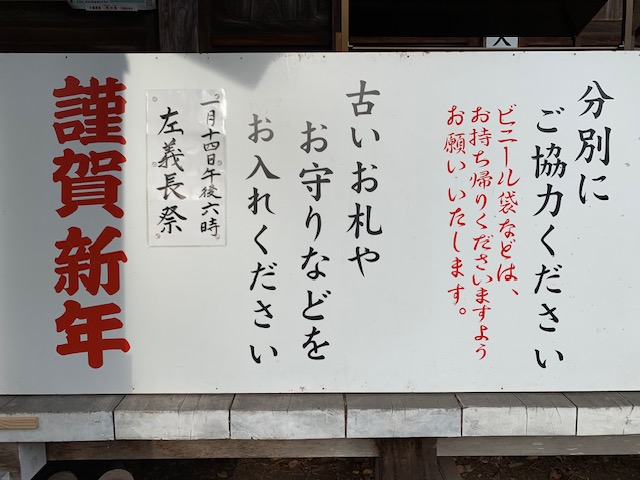 分別に
ご協力ください
ビニール袋などは、
お持ち帰りくださいますよう
お願いいたします。
古いお札や
お守りなどを
お入れください
一月十四日午後六時
左義長祭
謹賀新年